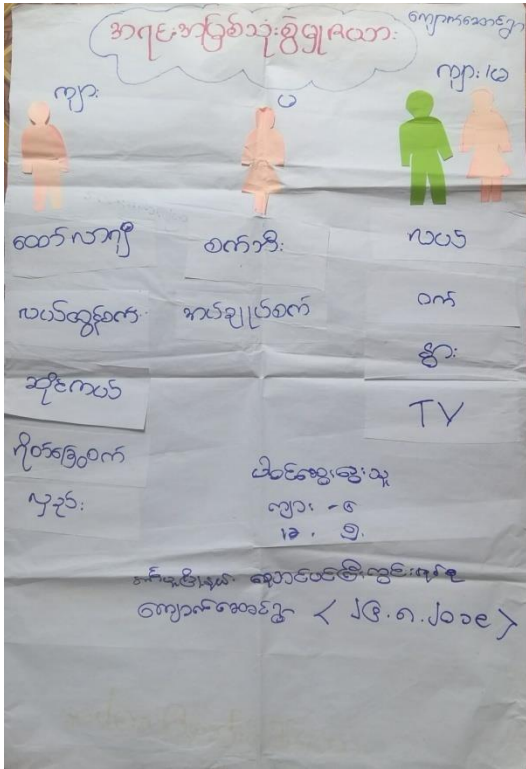 အရင်းအမြစ်သုံးစွဲမှုဇယား
ကျောက်ဆောင်ရွာ
ကျား
မ
ကျား/မ
ထော်လာဂျီ
စက်ဘီး
လယ်
လယ်ထွန်စက်
အပ်ချုပ်စက်
ဝက်
နွား
ဆိုင်ကယ်
TV
ကိုတ်ခြွေစက်
လှည်း
ပါဝင်ဆွေးနွေးသူ
ကျား - ၆
မ - ၅
ကျောက်ဆောင်ရွာ